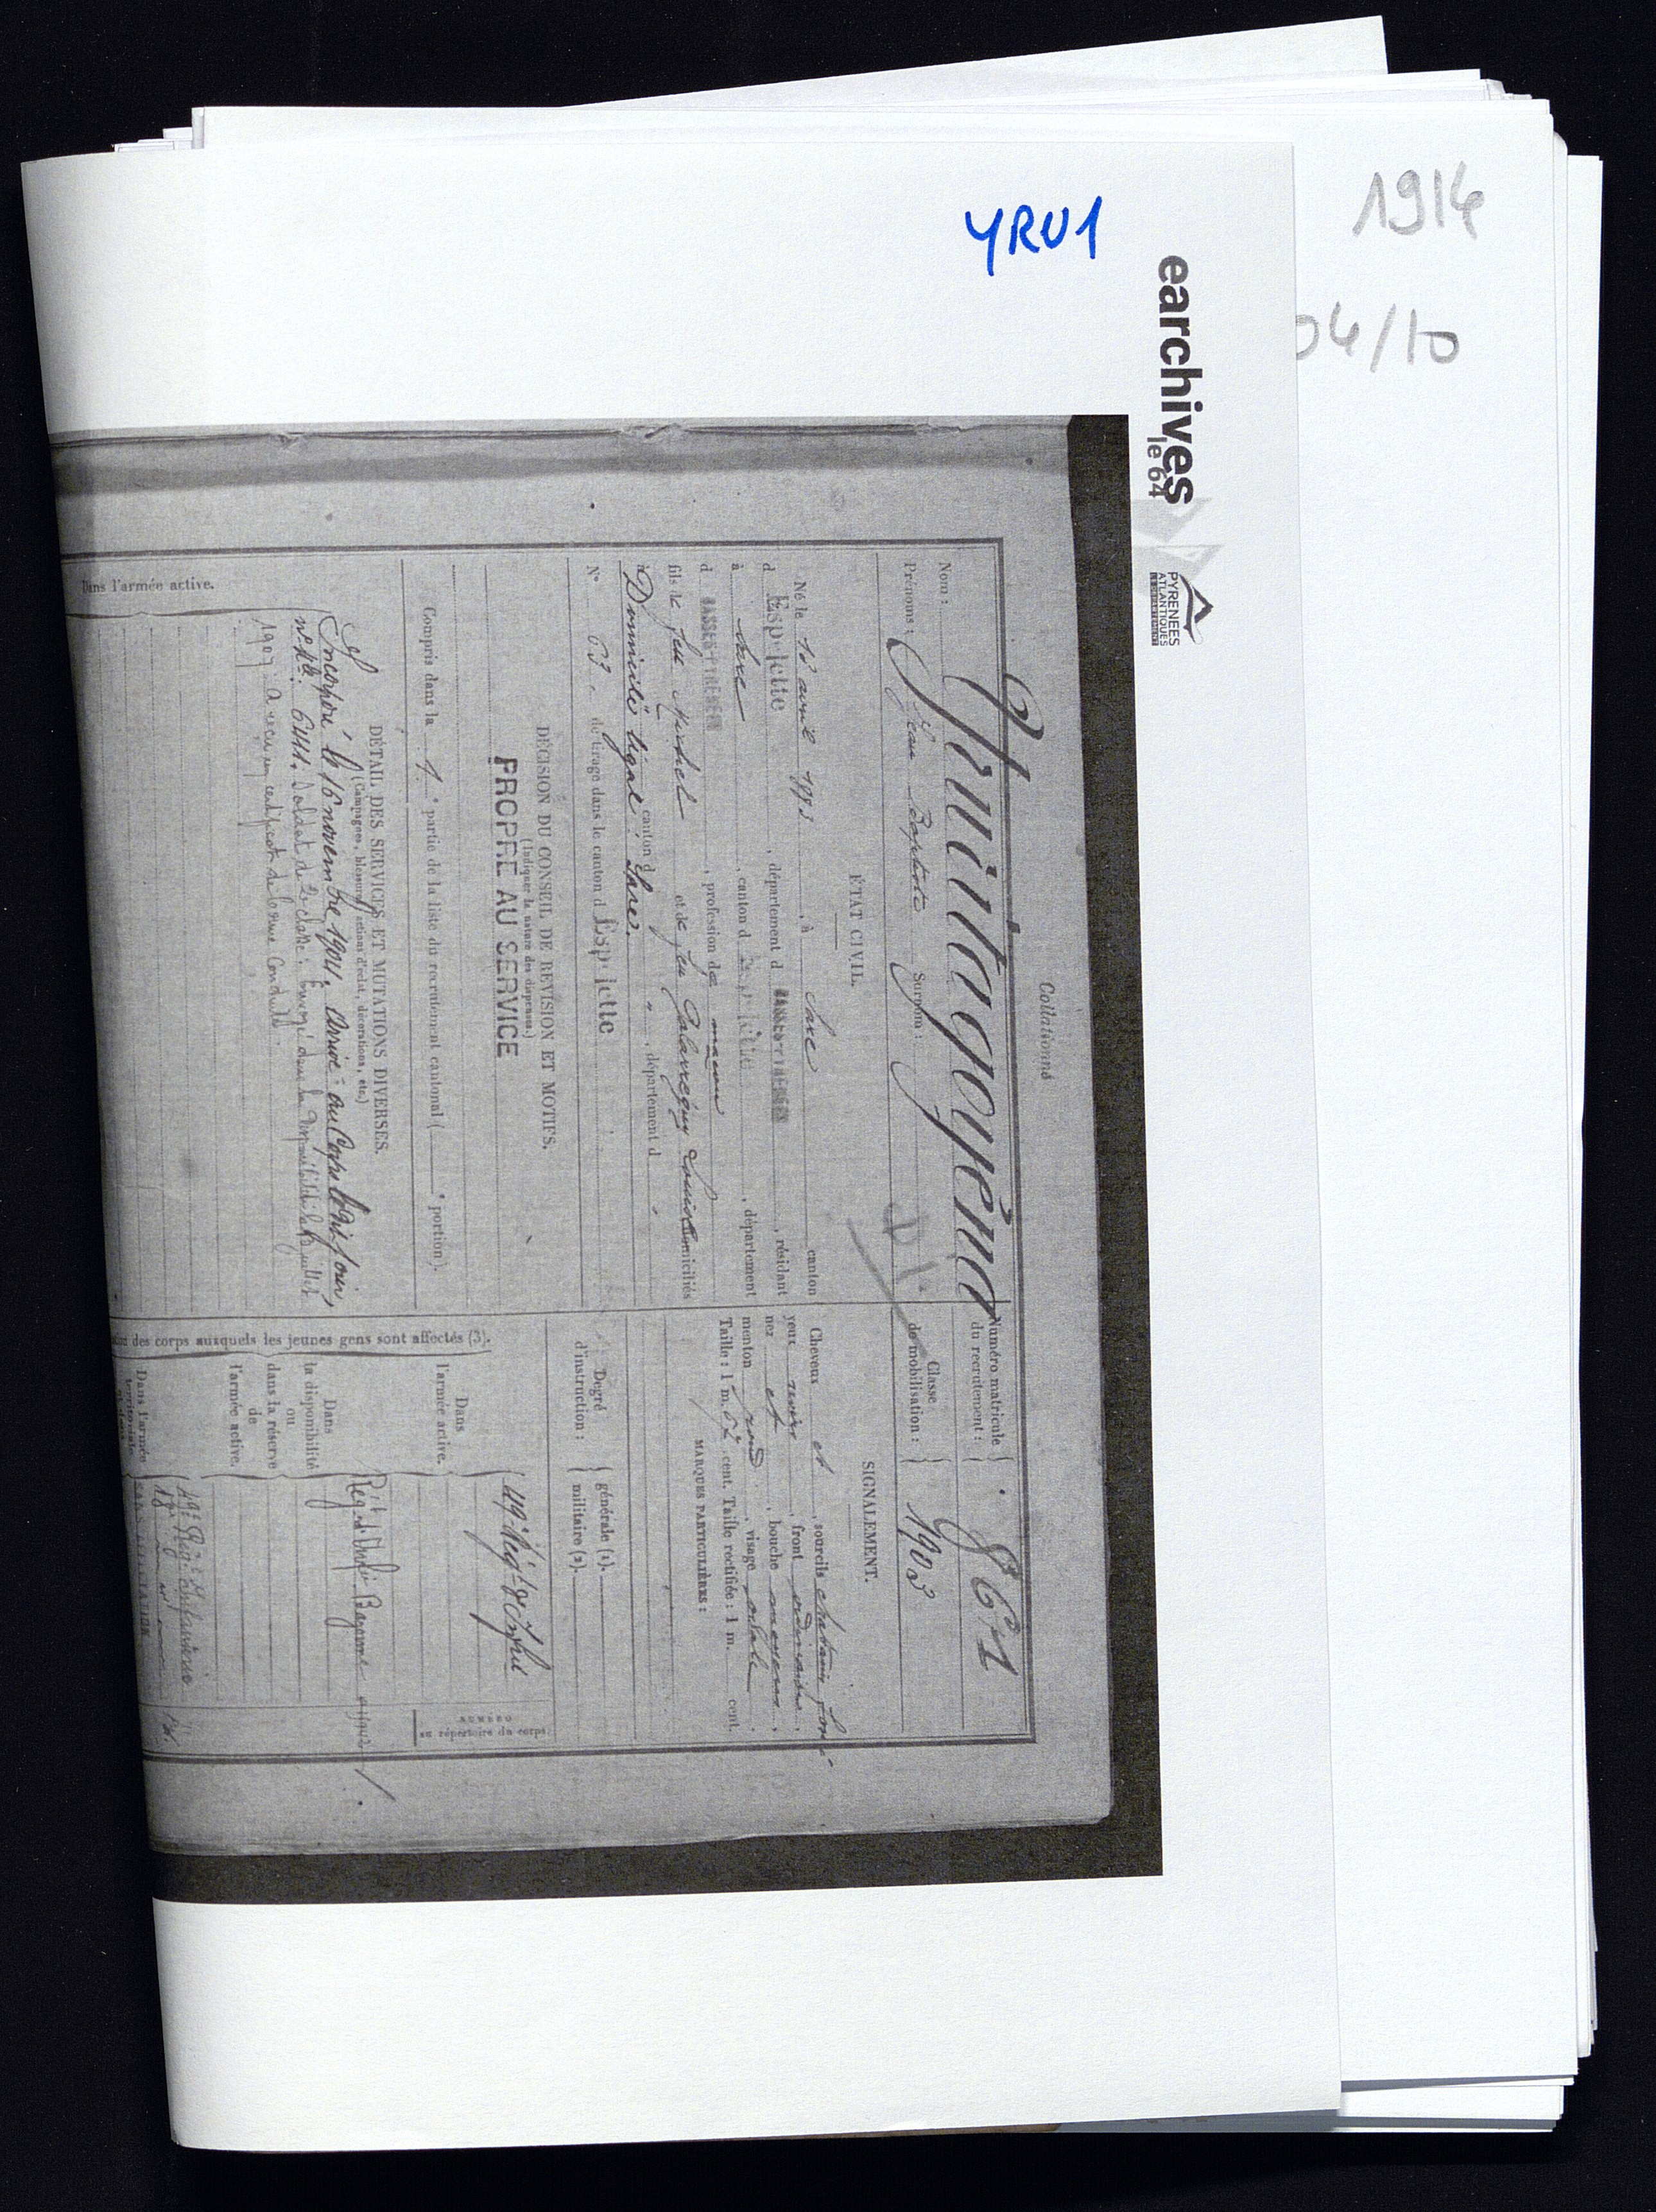 1914
04/10
YRU1
earchives
le 64
PYRENEES
ATLANTIQUES
Collationné
Nom : Yruretagoyena
Prénoms : Jean Baptiste Surnom :
Numéro matricule
du recrutement : 861
Classe
de mobilisation : 1903
ÉTAT CIVIL.
Né le 18 avril 1883, à Sare canton
d Espelette, département d BASSES-PYRÉNÉES, résidant
à Sare, canton d Espelette, département
d BASSES-PYRÉNÉES, profession de maçon
fils de feu Michel et de feu Louise domiciliés
à canton d " , département d "
Domicile légal : Sare.
N° 63 de tirage dans le canton d Espelette
SIGNALEMENT.
Cheveux et sourcils chatain foncé
yeux noirs, front ordinaire,
nez et, bouche moyenne,
menton rond, visage ovale.
Taille : 1 m. 62 cent. Taille rectifiée : 1 m. cent.
MARQUES PARTICULIÈRES :
DÉCISION DU CONSEIL DE REVISION ET MOTIFS.
(Indiquer la nature des dispenses.)
PROPRE AU SERVICE
Compris dans la 1e partie de la liste du recrutement cantonal ( e portion).
Degré
d'instruction :
générale (1).
militaire (2).
DÉTAIL DES SERVICES ET MUTATIONS DIVERSES.
(Campagnes, blessures, actions d'éclat, décorations, etc.)
Dans l'armée active.
Incorporé le 16 novembre 1904. Arrivé au Corps le dit jour,
n° Mle 6411. Soldat de 2e classe. Envoyé dans la disponibilité le juillet
1907. A reçu un certificat de bonne Conduite.
des corps auxquels les jeunes gens sont affectés (3).
NUMÉRO
au répertoire du corps.
Dans
l'armée active.
49e Régt d'Infie
Dans
la disponibilité
ou
dans la réserve
de
l'armée active.
Régt d'Infie Bayonne
Dans l'armée
territoriale
49e Régt Infanterie
18e